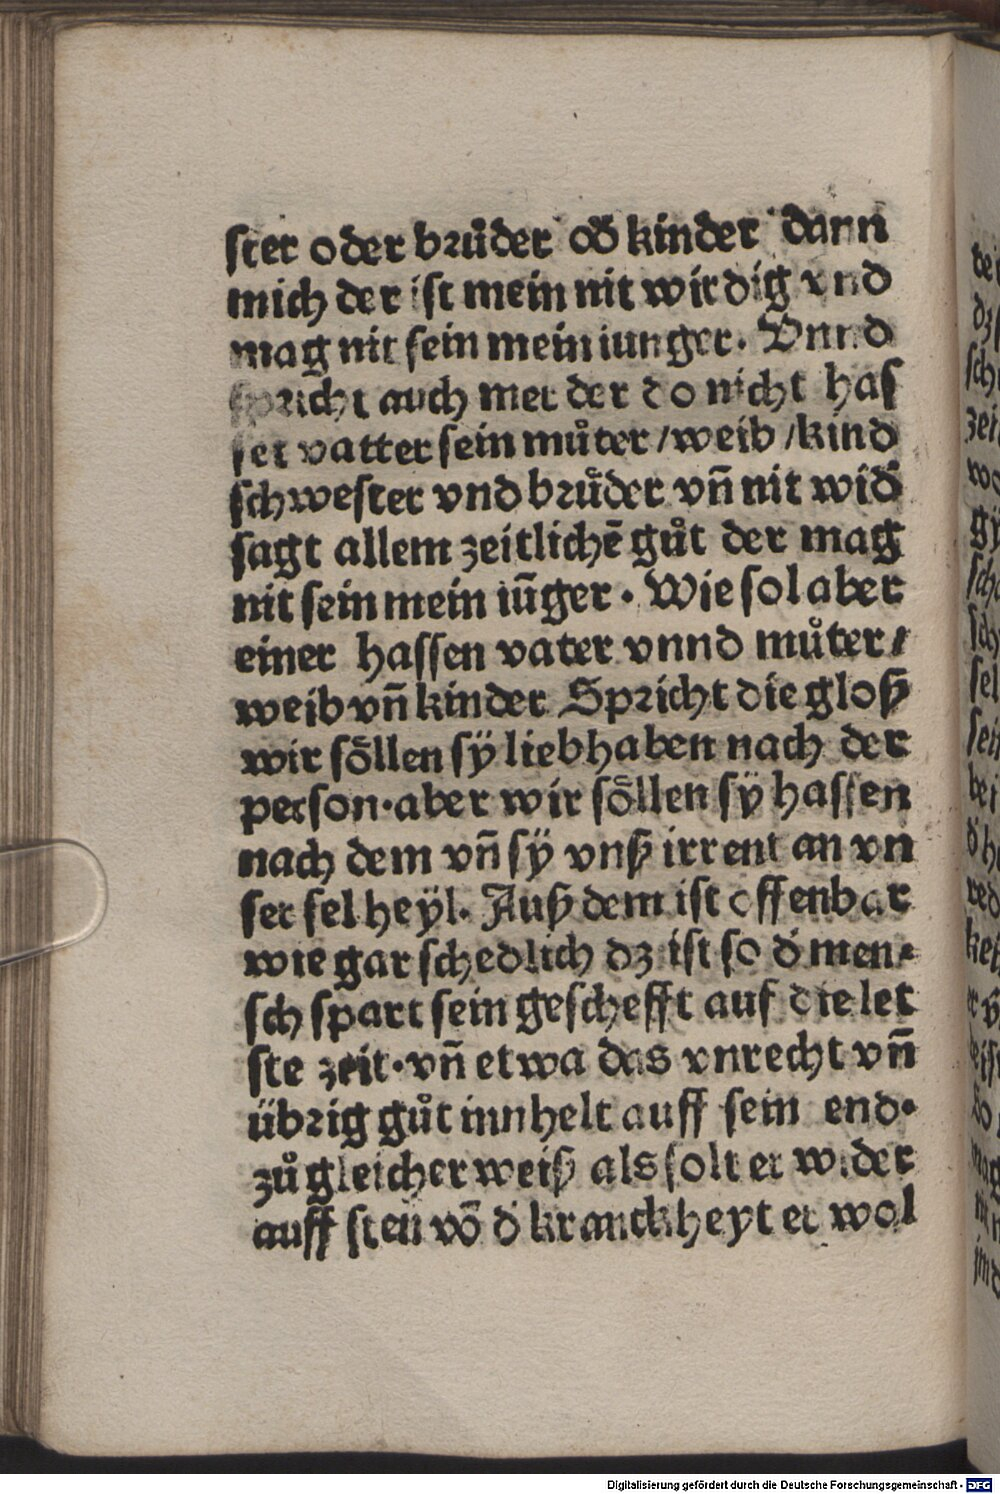 ſter oder bruͦder od̕ kinder dann
mich der iſt mein nit wirdig vnd
mag nit ſein mein iunger. Vnnd
ſpricht auch mer der do nicht haſ
ſet vatter ſein muͦter /weib /kind
ſchweſter vnd bruͤder vñ nit wid̕
ſagt allem zeitlichē guͦt der mag
nit ſein mein iūger. Wie ſol aber
einer haſſen vater vnnd muͦter/
weib vñ kinder Spricht die gloß
wir ſoͤllen ſÿ liebhaben nach der
perſon·aber wir ſoͤllen ſÿ haſſen
nach dem vñ ſÿ vnß irrent an vn
ſer ſel heÿl. Auß dem iſt offenbar
wie gar ſchedlich dz iſt ſo d̕ men⸗
ſch ſpart ſein geſchefft auf die let
ſte zeit·vñ etwa das vnrecht vñ
übrig guͦt innhelt auff ſein end·
zuͦ gleicher weiß als ſolt er wider
auff ſten vō d̕ kranckheyt er wol
Digitalisierung gefördert durch die Deutsche Forschungsgemeinschaft - DFG